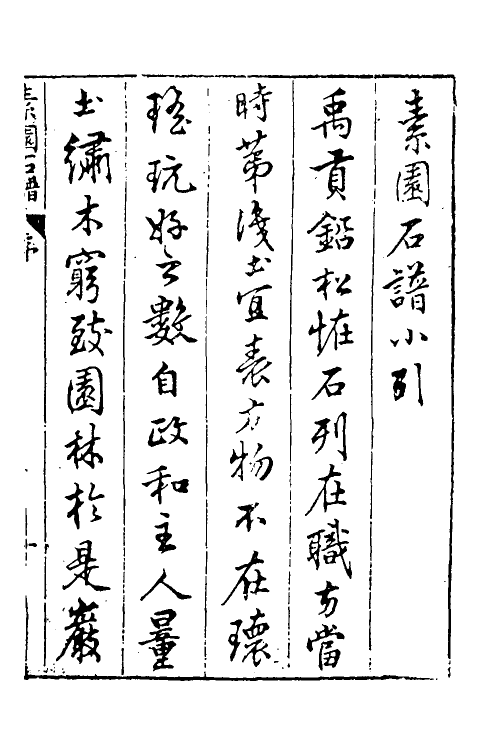 素園石譜小引
禹貢鉛松恠石列在職方當
時第淺土宜表方物不在瓌
琦玩好之數自政和主人畺
土繡木窮致園林於是巖
素園石譜
序
一